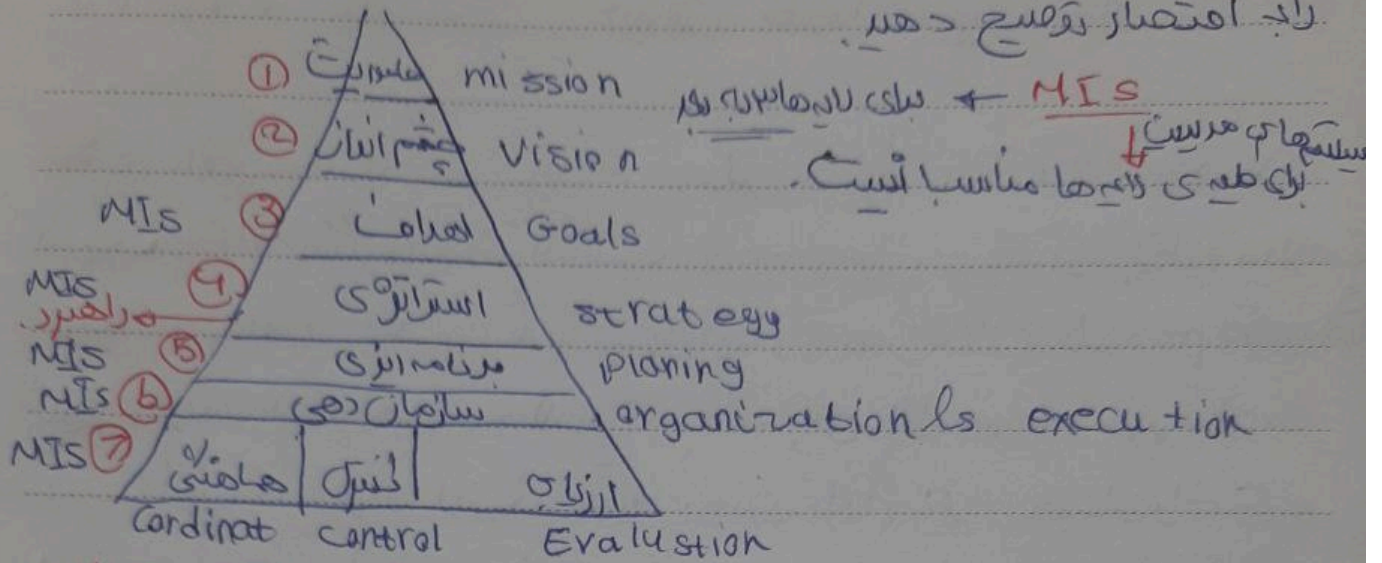 را به اختصار توضیح دهید.
① ماموریت mission
MIS ← برای لایه‌های ۳ به بعد
② چشم انداز Vision
سیستمهای مدیریت
برای طبقه‌ی لایه‌ها مناسب است.
MIS ③ اهداف Goals
MIS ④ استراتژی strategy
راهبرد
MIS ⑤ برنامه ریزی planing
MIS ⑥ سازمان دهی organization ls execution
MIS ⑦ هماهنگی کنترل ارزیابی
Cordinat control Evalustion